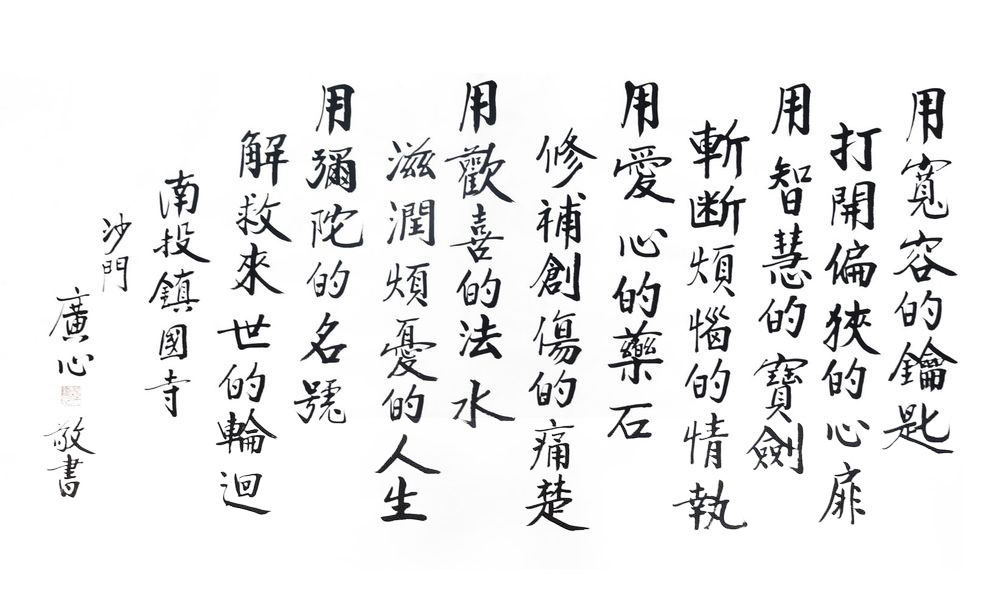 用寬容的鑰匙
打開偏狹的心扉
用智慧的寶劍
斬断煩惱的情執
用愛心的藥石
修補創傷的痛楚
用歡喜的法水
滋潤煩憂的人生
用彌陀的名號
解救來世的輪迴
南投鎮國寺
沙門
廣心
敬書